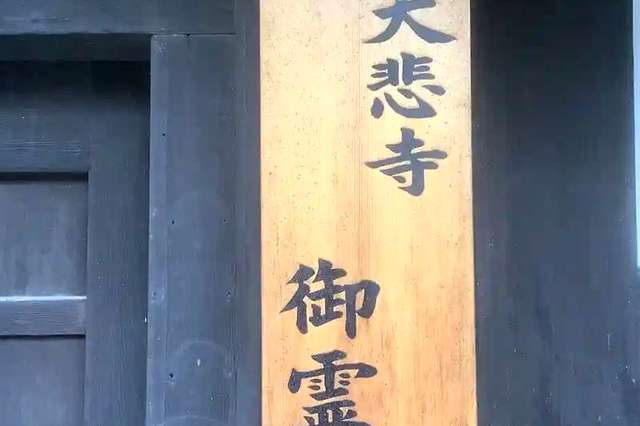 大悲寺
御霊